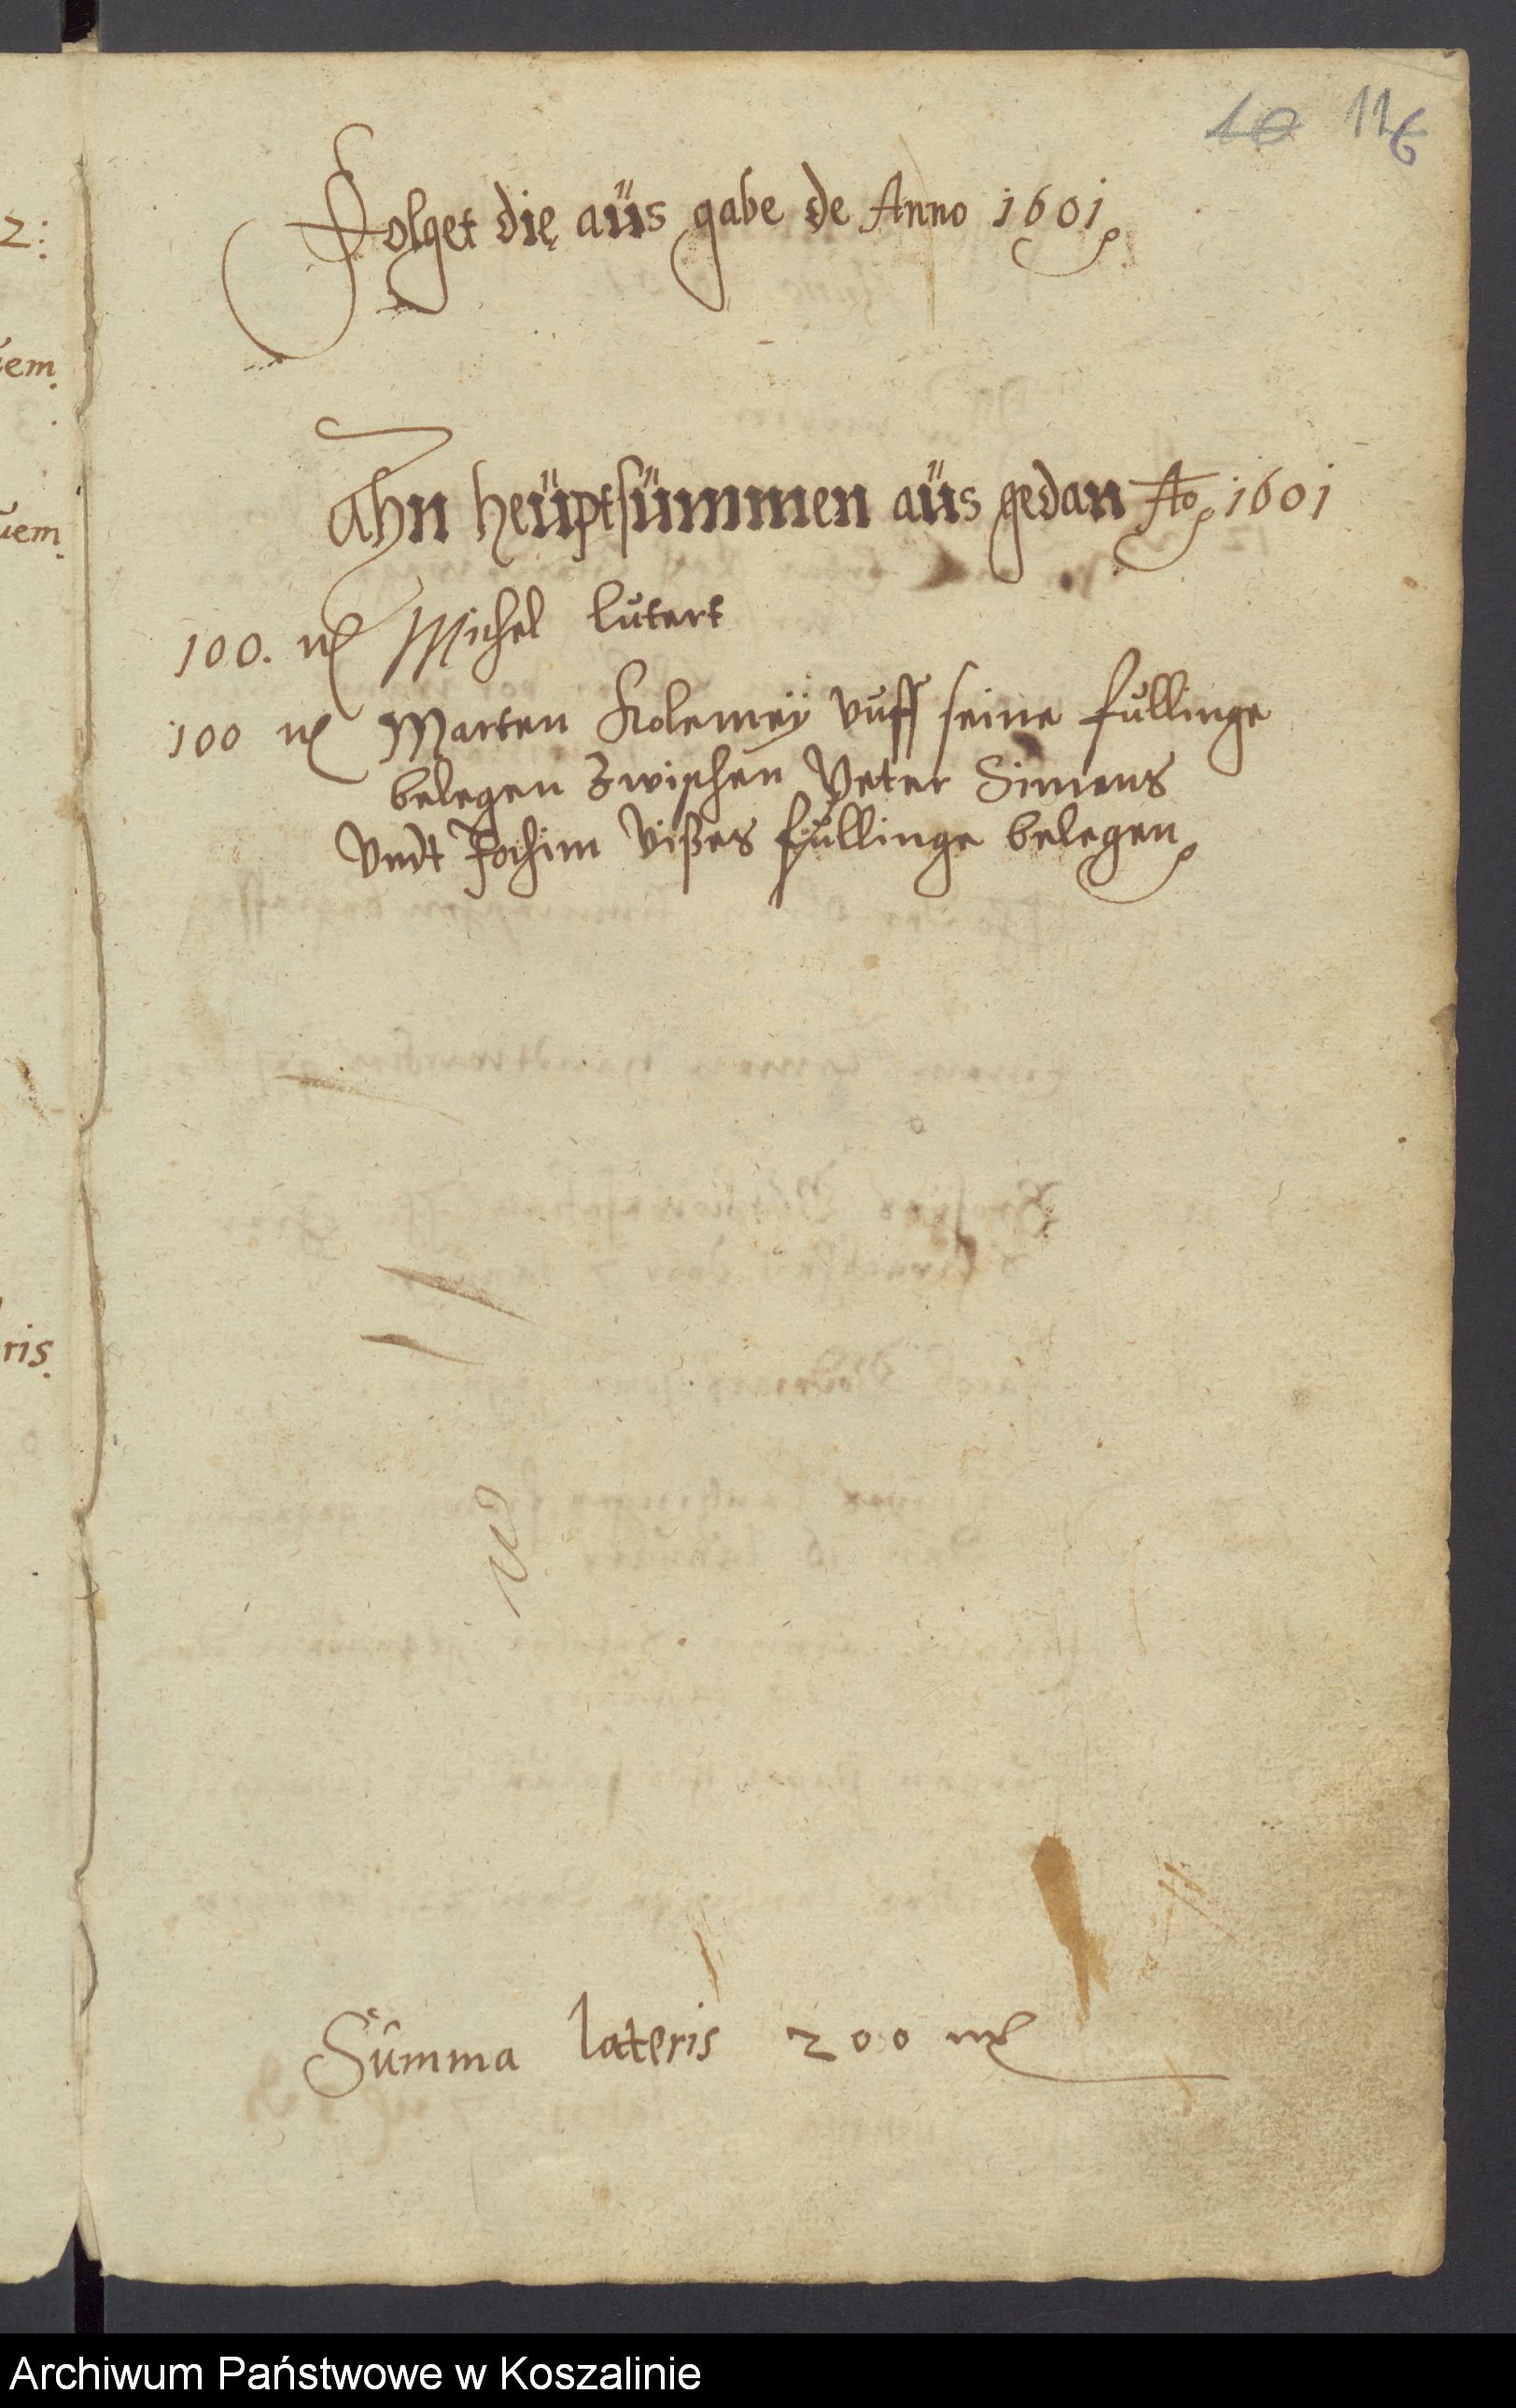 10 116
Folget die aüs gabe de Anno 1601
Ahn heüptsümmen aüs gedan Ao 1601
100. mk Michel Lutert
100 mk Marten Kolemeÿ vuff seine fullinge
belegen Zwischen Peter Simens
Vndt Jochim Vißes fullinge belegen
Summa lateris 200 mk
2:
em.
uem.
ris.
Archiwum Państwowe w Koszalinie